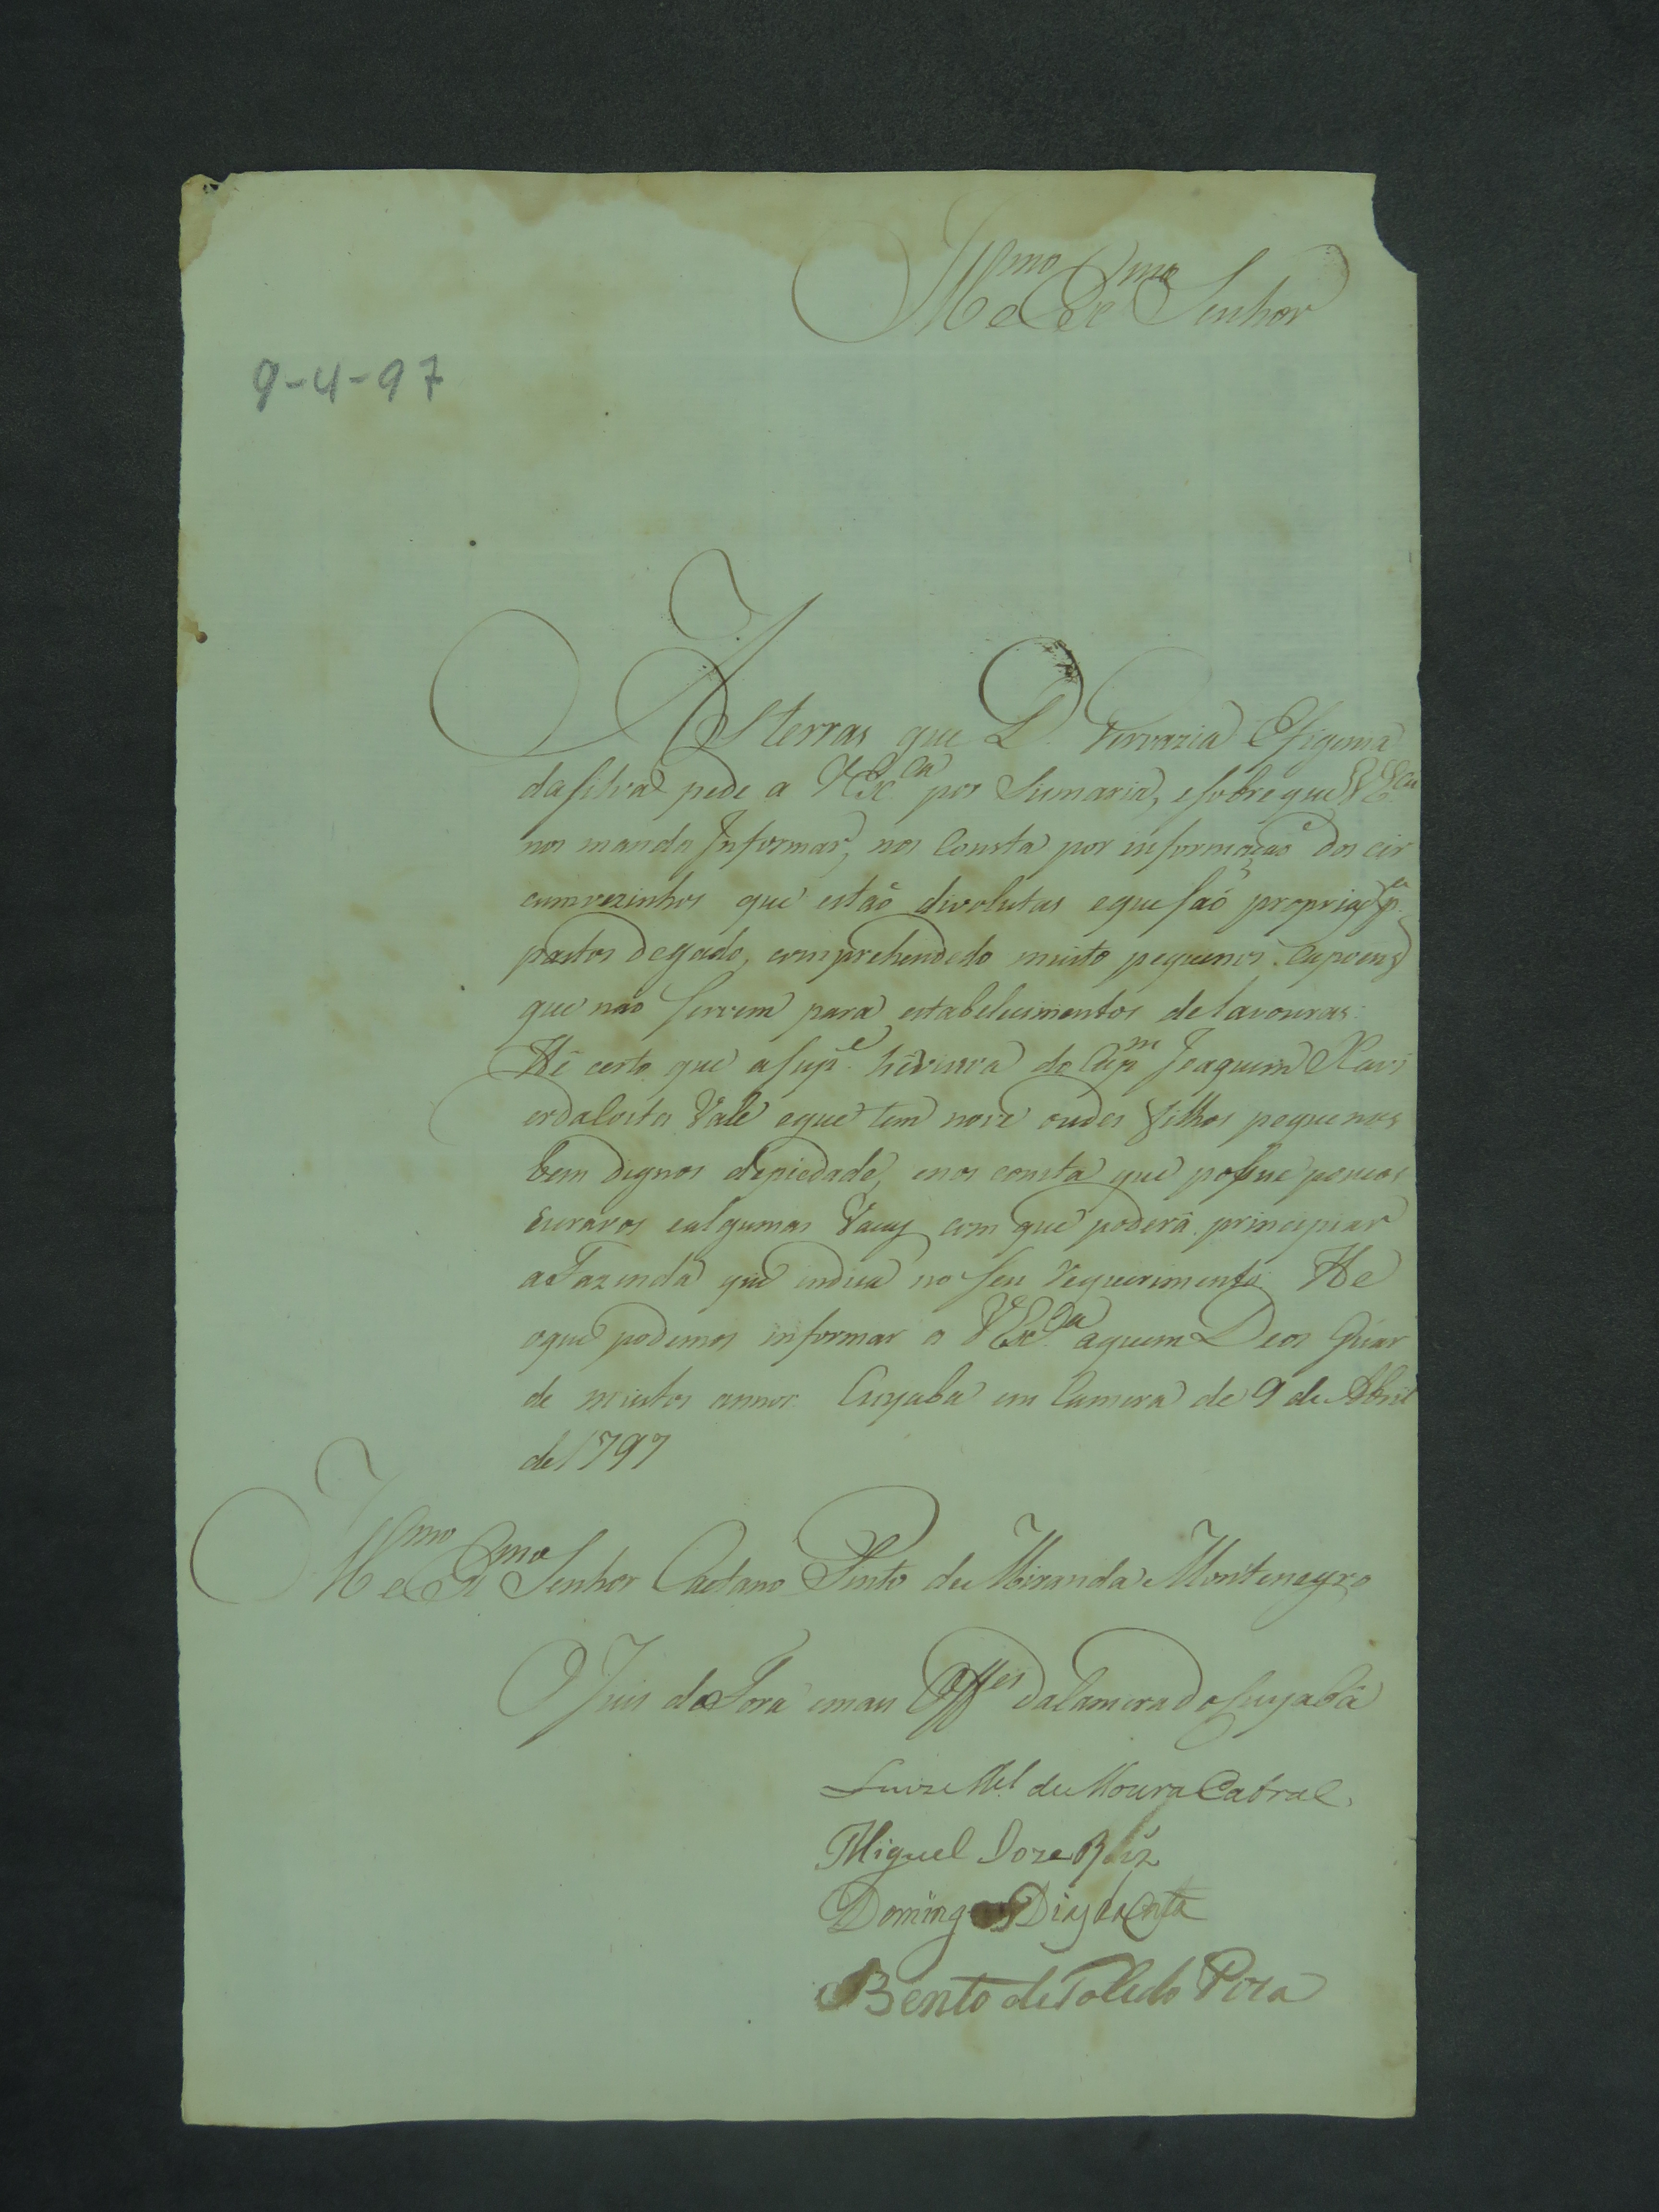 Illmo e Exmo Senhor
9-4-97
As terras que D. Gervazia Efigenia
da Silva pede a V Exca por Sismaria, e sobre que V Exca
nos manda Informar, nos Consta por informação dos cir
cumvezinhos que estão divolutas e que são proprias pa
pastos de gado, comprehendedo muito pequenos Capoens
que não servem para estabelecimentos de lavouras:
Hê certo que a Supe hê viuva do Capm Joaquim Xavi
er da Costa Vale e que tem nove ou des filhos pequenos
bem dignos depiedade, e nos consta que possue poucos
Escravos e algumas Vacas com que poderá principiar
a Fazenda que indica no seu requerimento He
o que podemos informar a V Exca a quem Deos Guar
de muitos annos. Cuyaba em Camera de 9 de Abril
de 1797
Illmo e Exmo Senhor Caetano Pinto de Miranda Montenegro
O Juis de Fora e mais Offes da Camera do Cuyabá
Luiz Mel de Moura Cabral.
Miguel Joze Roiz
Domingos Dias da Costa
Bento de Toledo Piza